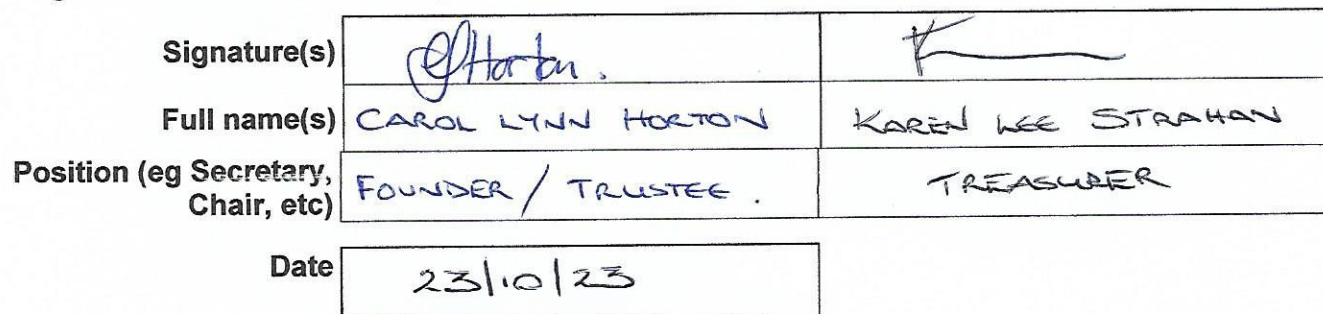 Signature(s) CHorton.
Full name(s) CAROL LYNN HORTON KAREN LEE STRAHAN
Position (eg Secretary, Chair, etc) FOUNDER / TRUSTEE. TREASURER
Date 23/10/23